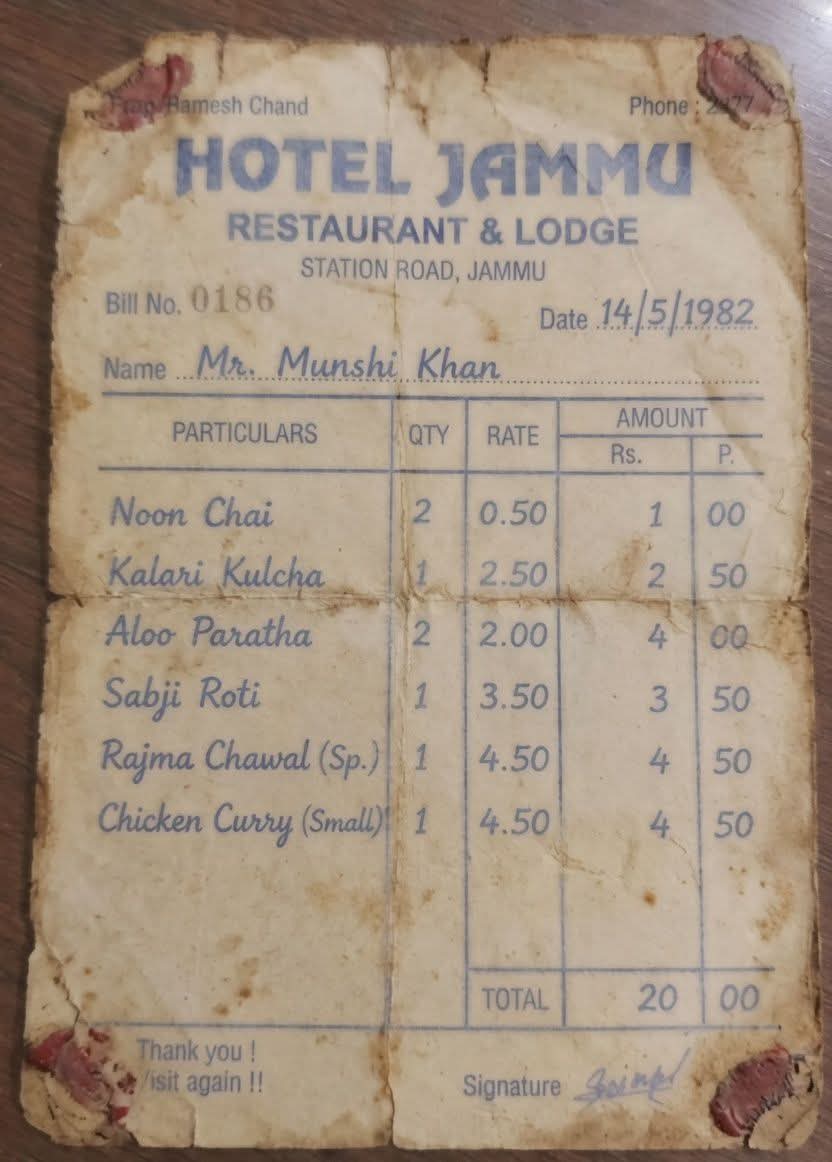 Prop. Ramesh Chand Phone : 2977
HOTEL JAMMU
RESTAURANT & LODGE
STATION ROAD, JAMMU
Bill No. 0186 Date 14/5/1982
Name Mr. Munshi Khan
PARTICULARS QTY RATE AMOUNT
Rs. P.
Noon Chai 2 0.50 1 00
Kalari Kulcha 1 2.50 2 50
Aloo Paratha 2 2.00 4 00
Sabji Roti 1 3.50 3 50
Rajma Chawal (Sp.) 1 4.50 4 50
Chicken Curry (Small) 1 4.50 4 50
TOTAL 20 00
Thank you !
Visit again !!
Signature